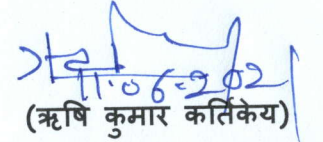 11.06.2021
(ऋषि कुमार कर्तिकेय)